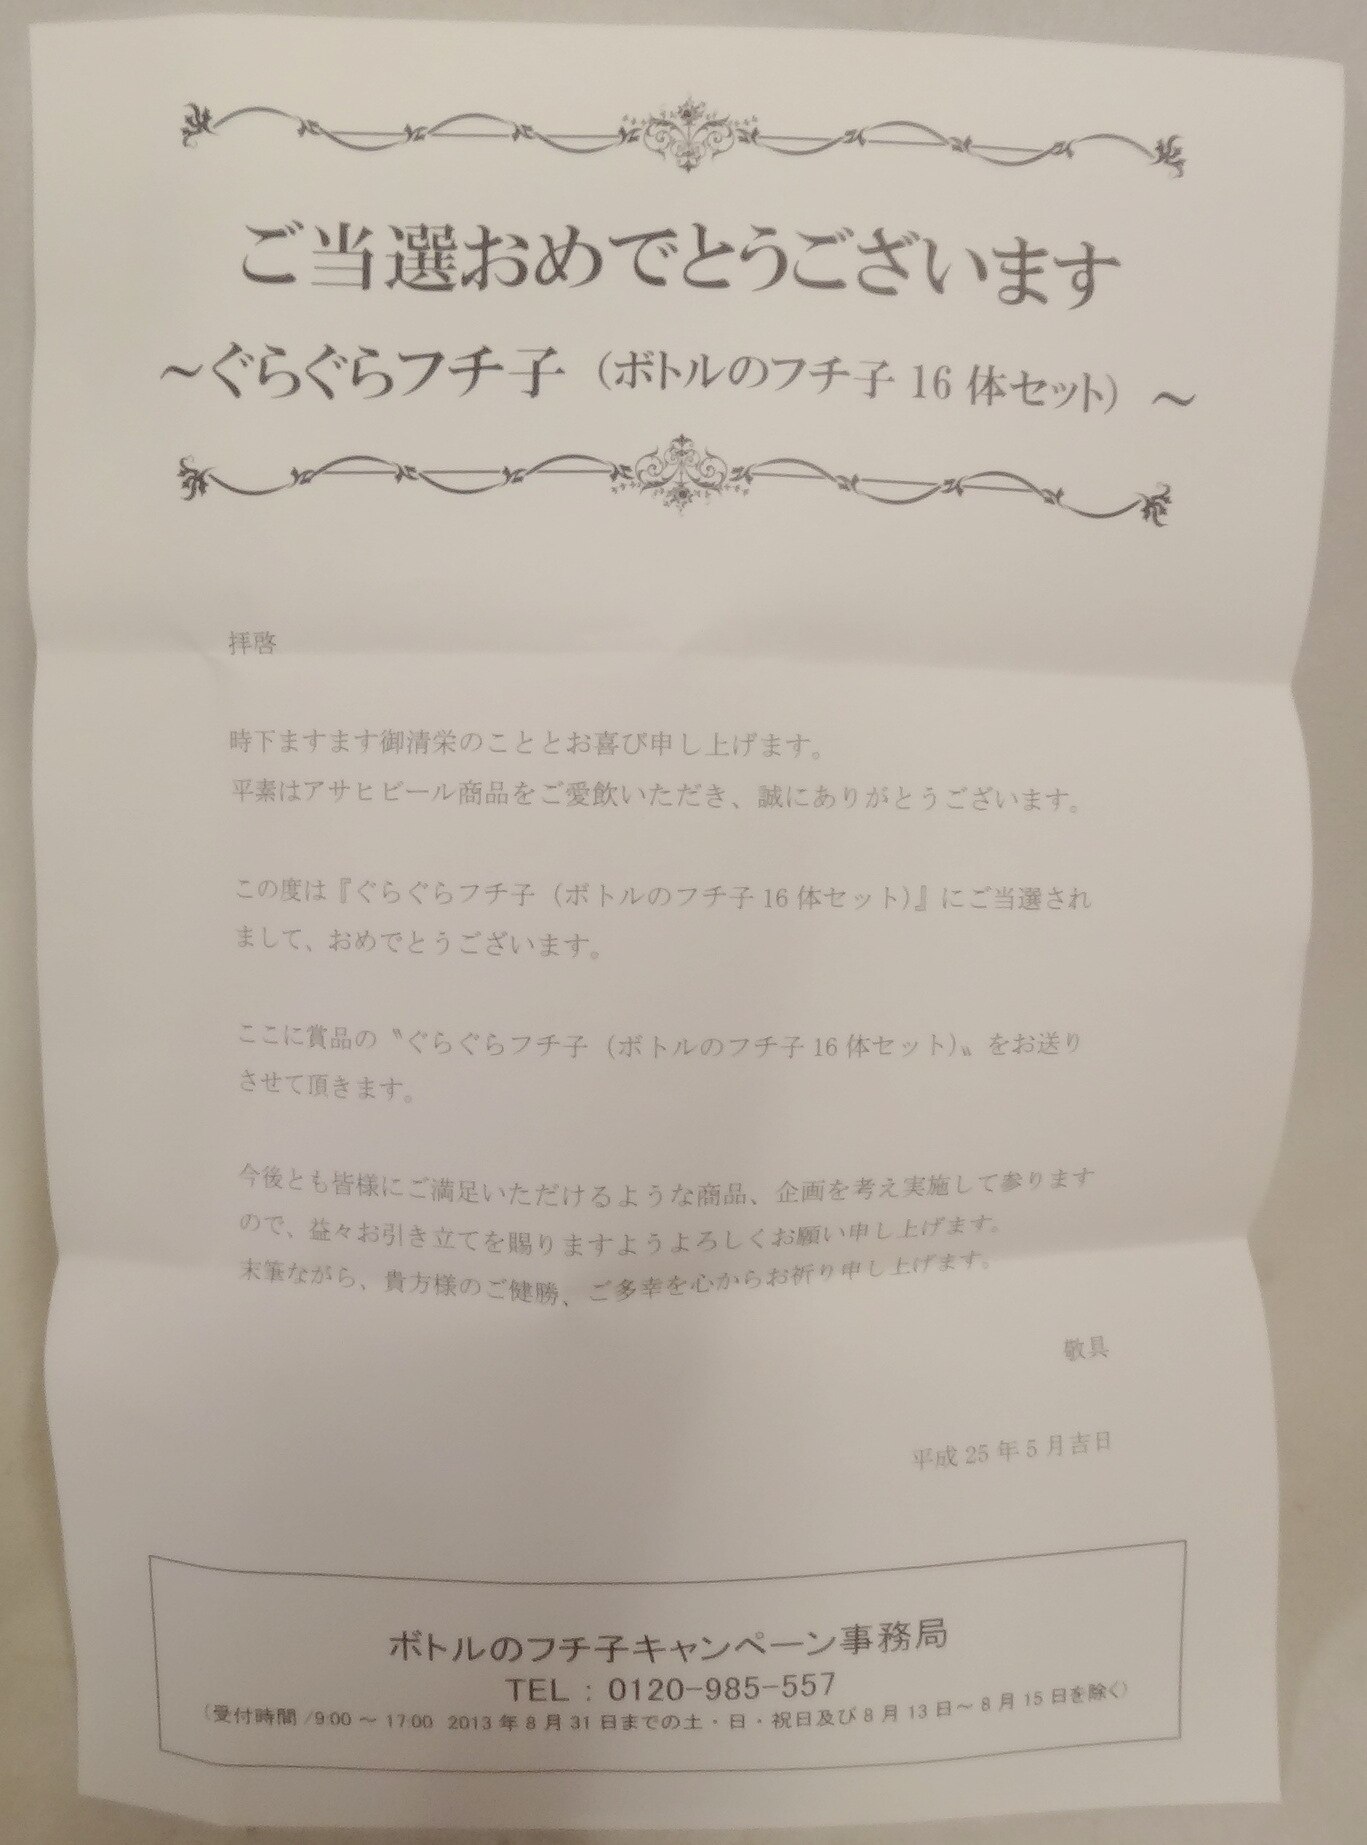 ご当選おめでとうございます
～ぐらぐらフチ子（ボトルのフチ子 16 体セット）～
拝啓
時下ますます御清栄のこととお喜び申し上げます。
平素はアサヒビール商品をご愛飲いただき、誠にありがとうございます。
この度は『ぐらぐらフチ子（ボトルのフチ子 16 体セット）』にご当選され
まして、おめでとうございます。
ここに賞品の〝ぐらぐらフチ子（ボトルのフチ子 16 体セット）〟をお送り
させて頂きます。
今後とも皆様にご満足いただけるような商品、企画を考え実施して参ります
ので、益々お引き立てを賜りますようよろしくお願い申し上げます。
末筆ながら、貴方様のご健勝、ご多幸を心からお祈り申し上げます。
敬具
平成 25 年 5 月吉日
ボトルのフチ子キャンペーン事務局
TEL：0120-985-557
（受付時間/9:00～17:00 2013年8月31日までの土・日・祝日及び8月13日～8月15日を除く）